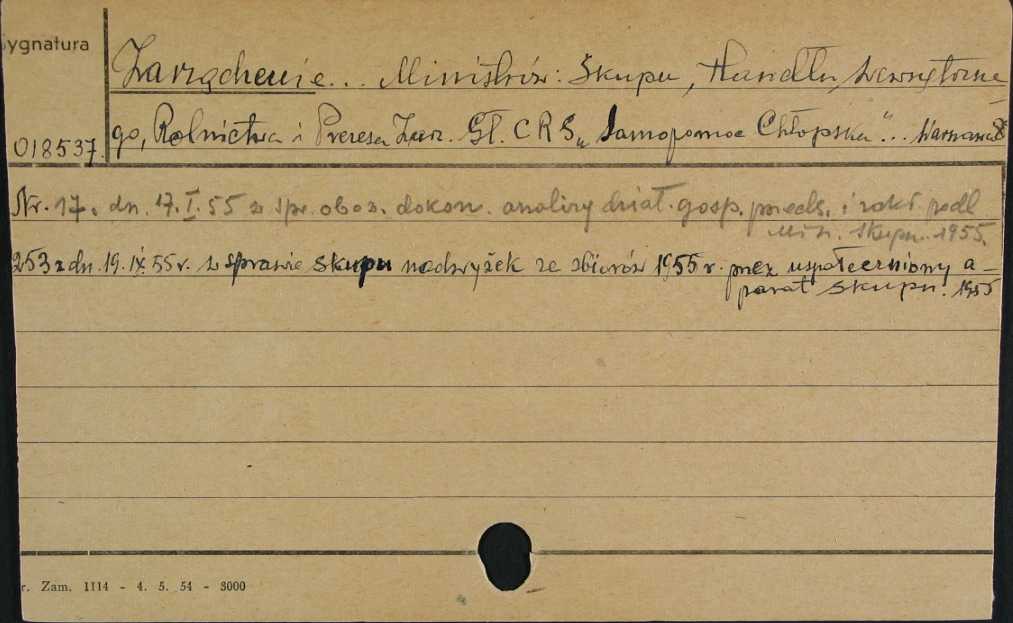 Sygnatura
Zarządzenie... Ministrów: Skupu, Handlu Wewnętrzne-
018537 go, Rolnictwa i Prezesa Zarz. Gł. C R S „Samopomoc Chłopska"... Warszawa
Nr. 17. dn. 17.I.55 w spr. obow. dokon. analizy dział. gosp. przeds. i zakł. podl
Min. Skupu. 1955.
253 z dn. 19.IX.55r. w sprawie skupu nadwyżek ze zbiorów 1955 r. przez uspołeczniony a-
parat skupu. 1955
r. Zam. 1114 - 4. 5. 54 - 3000